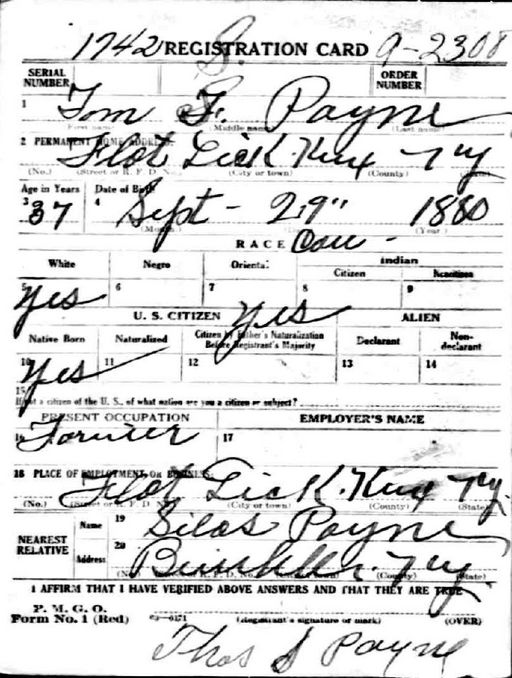 1742 REGISTRATION CARD 9-2308
SERIAL NUMBER ORDER NUMBER
1 Tom F. Payne
First name Middle name (Last name)
2 PERMANENT HOME ADDRESS:
Flat Lick Knx Ky
(No.) (Street or R. F. D. No.) (City or town) (County) (State)
Age in Years Date of Birth
3 37 4 Sept - 29" 1880
(Month) (Year)
RACE Cau -
White Negro Oriental Indian
Citizen Noncitizen
5 yes 6 7 8 9
U. S. CITIZEN yes ALIEN
Native Born Naturalized Citizen by Father's Naturalization Before Registrant's Majority Declarant Non-declarant
10 yes 11 12 13 14
15
If not a citizen of the U. S., of what nation are you a citizen or subject?
PRESENT OCCUPATION EMPLOYER'S NAME
16 Farmer 17
18 PLACE OF EMPLOYMENT OR BUSINESS:
Flat Lick. Knx Ky.
(No.) (Street or R. F. D. No.) (City or town) (County) (State)
NEAREST RELATIVE
Name 19 Silas Payne
Address 20 Ky.
(No.) (County) (State)
I AFFIRM THAT I HAVE VERIFIED ABOVE ANSWERS AND THAT THEY ARE TRUE
P. M. G. O.
Form No. 1 (Red) (Registrant's signature or mark) (OVER)
Thos S Payne